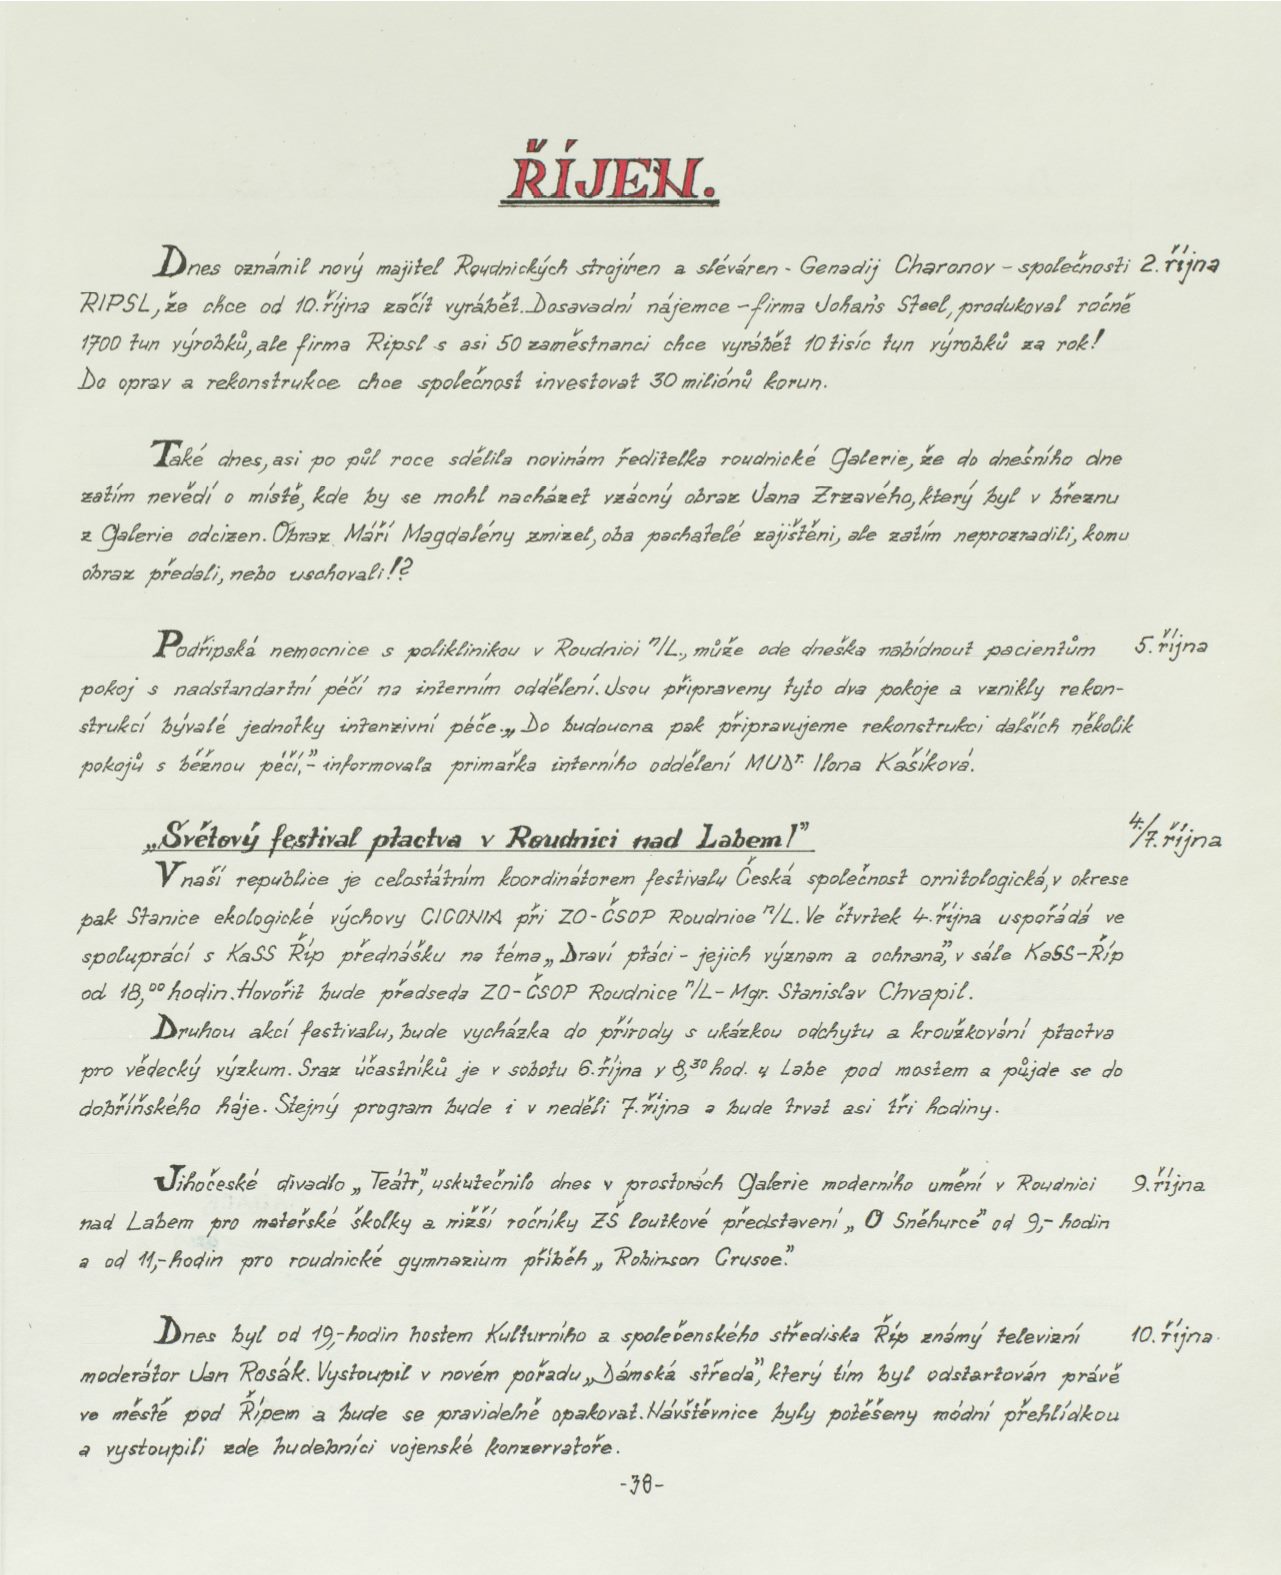 ŘÍJEN.
Dnes oznámil nový majitel Roudnických strojíren a sléváren - Genadij Charonov - společnosti 2. října
RIPSL, že chce od 10. října začít vyrábět. Dosavadní nájemce - firma Johan's Steel, produkoval ročně
1700 tun výrobků, ale firma Ripsl s asi 50 zaměstnanci chce vyrábět 10 tisíc tun výrobků za rok!
Do oprav a rekonstrukce chce společnost investovat 30 miliónů korun.
Také dnes, asi po půl roce sdělila novinám ředitelka roudnické Galerie, že do dnešního dne
zatím nevědí o místě, kde by se mohl nacházet vzácný obraz Jana Zrzavého, který byl v březnu
z Galerie odcizen. Obraz Máří Magdalény zmizel, oba pachatelé zajištěni, ale zatím neprozradili, komu
obraz předali, nebo uschovali!?
Podřipská nemocnice s poliklinikou v Roudnici n/L., může ode dneška nabídnout pacientům 5. října
pokoj s nadstandartní péčí na interním oddělení. Jsou připraveny tyto dva pokoje a vznikly rekon-
strukcí bývalé jednotky intenzivní péče. „Do budoucna pak připravujeme rekonstrukci dalších několik
pokojů s běžnou péčí," - informovala primařka interního oddělení MUDr. Ilona Kašíková.
„Světový festival ptactva v Roudnici nad Labem!" 4./7. října
V naší republice je celostátním koordinátorem festivalu Česká společnost ornitologická, v okrese
pak Stanice ekologické výchovy CICONIA při ZO-ČSOP Roudnice n/L. Ve čtvrtek 4. října uspořádá ve
spolupráci s KaSS Říp přednášku na téma „Draví ptáci - jejich význam a ochrana", v sále KaSS-Říp
od 18,00 hodin. Hovořit bude předseda ZO-ČSOP Roudnice n/L - Mgr. Stanislav Chvapil.
Druhou akcí festivalu, bude vycházka do přírody s ukázkou odchytu a kroužkování ptactva
pro vědecký výzkum. Sraz účastníků je v sobotu 6. října v 8,30 hod. u Labe pod mostem a půjde se do
dobříňského háje. Stejný program bude i v neděli 7. října a bude trvat asi tři hodiny.
Jihočeské divadlo „Teátr", uskutečnilo dnes v prostorách Galerie moderního umění v Roudnici 9. října
nad Labem pro mateřské školky a nižší ročníky ZŠ loutkové představení „O Sněhurce" od 9,- hodin
a od 11,- hodin pro roudnické gymnazium příběh „Robinson Crusoe".
Dnes byl od 19,- hodin hostem Kulturního a společenského střediska Říp známý televizní 10. října
moderátor Jan Rosák. Vystoupil v novém pořadu „Dámská středa", který tím byl odstartován právě
ve městě pod Řípem a bude se pravidelně opakovat. Návštěvnice byly potěšeny módní přehlídkou
a vystoupili zde hudebníci vojenské konzervatoře.
-38-